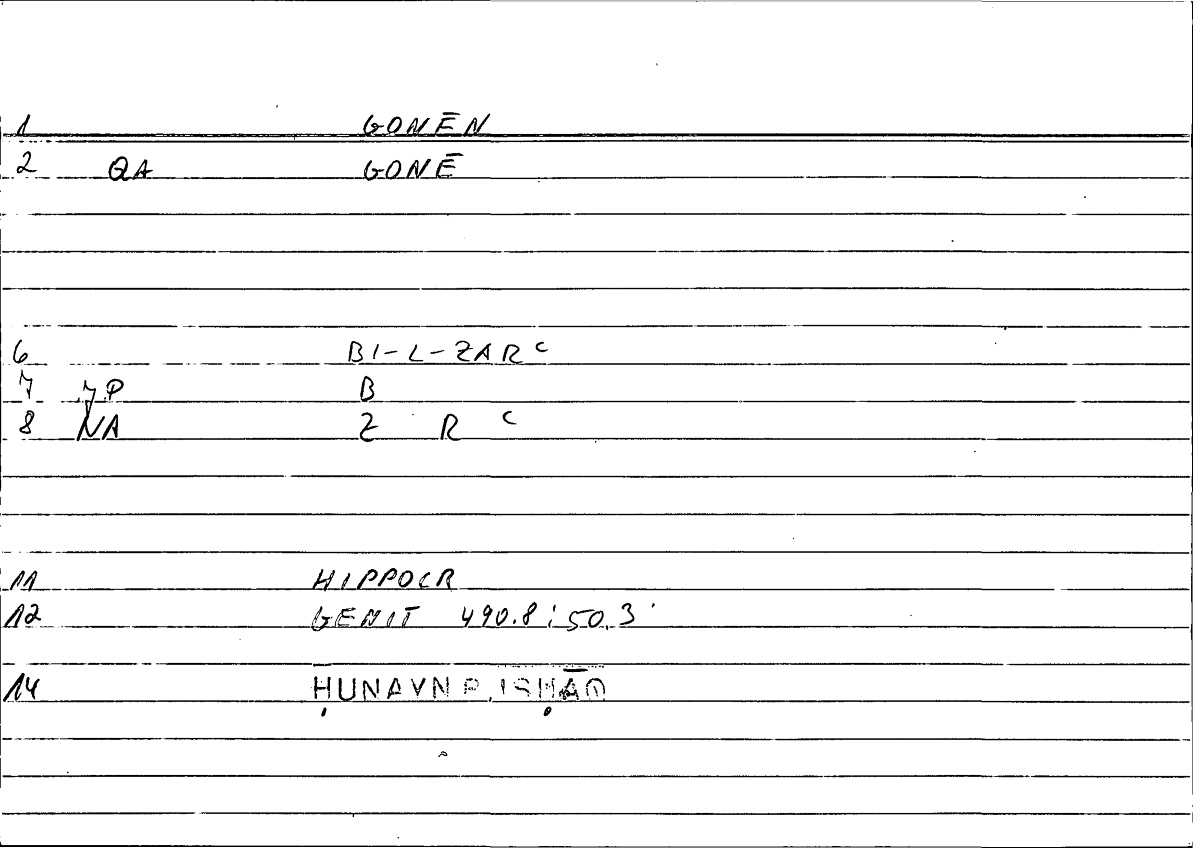 1 GONĒN
2 QA GONĒ
6 BI-L-ZARC
7 7P B
8 NA Z R C
11 HIPPOCR
12 GENIT 490.8; 50.3
14 ḤUNAYN B. ISḤĀQ